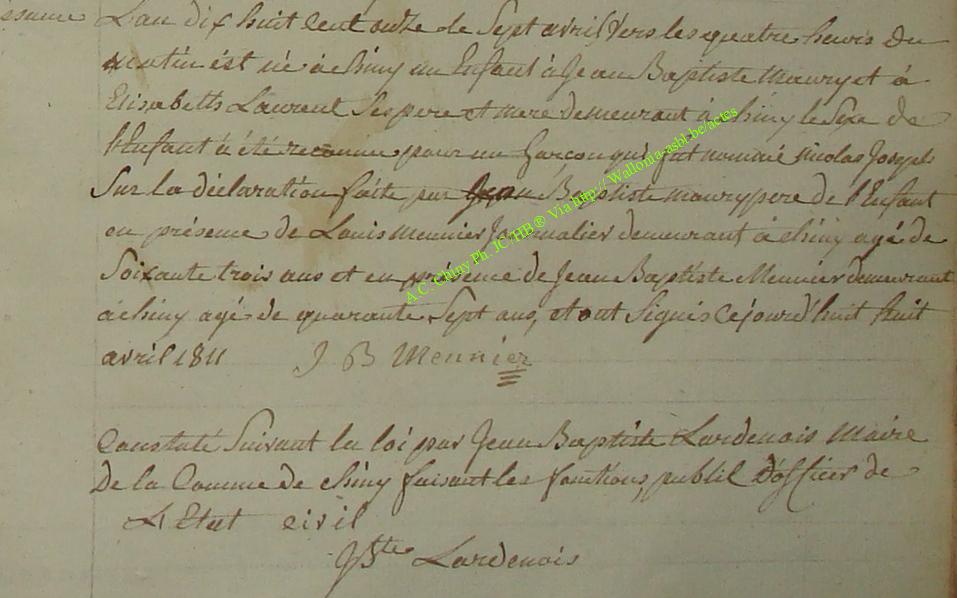 L'an dix huit cent onze le Sept avril, vers les quatre heurs du
matin est né à chiny un Enfant à Jean Baptiste maury et à
Elisabeth Laurent Ses pere et mere demeurant à chiny le Sexe de
l'Enfant à été reconnu pour un Garçon qui fut nommé nicolas Joseph
Sur la déclaration faite par Jean Baptiste maury pere de l'Enfant
en présence de Louis meunier Journalier demeurant à chiny agé de
Soixante trois ans et en présence de Jean Baptiste Meunier demeurant
à chiny agé de quarante Sept ans, et ont Signés cejourd'huit huit
avril 1811 J B Meunier
Constaté Suivant la loi par Jean Baptiste Lardenois Maire
De la Comme de chiny faisant les fonctions, publil D'officier de
L'Etat civil
JBte Lardenois
A.C. Chiny Ph. JC/HB® Via http://Wallonia-asbl.be/actes